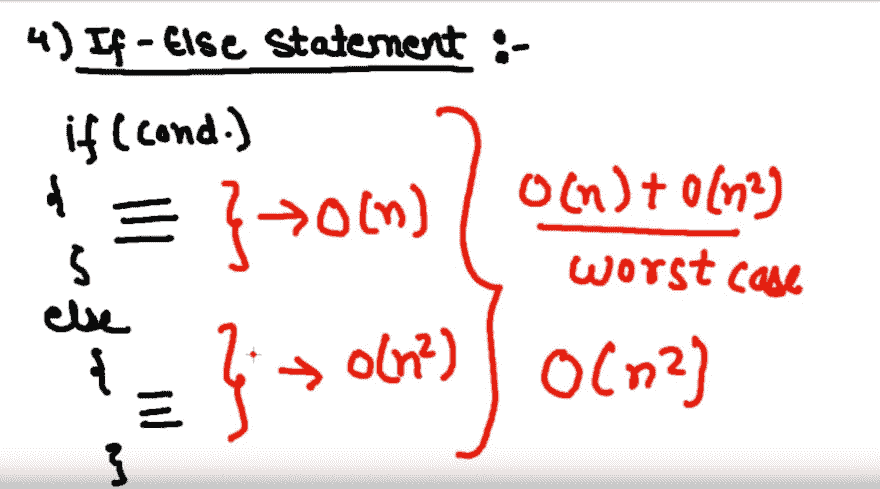 4) If-Else Statement :-
if (cond.)
{
} → O(n)
}
else
{
} → O(n²)
}
O(n) + O(n²)
worst case
O(n²)